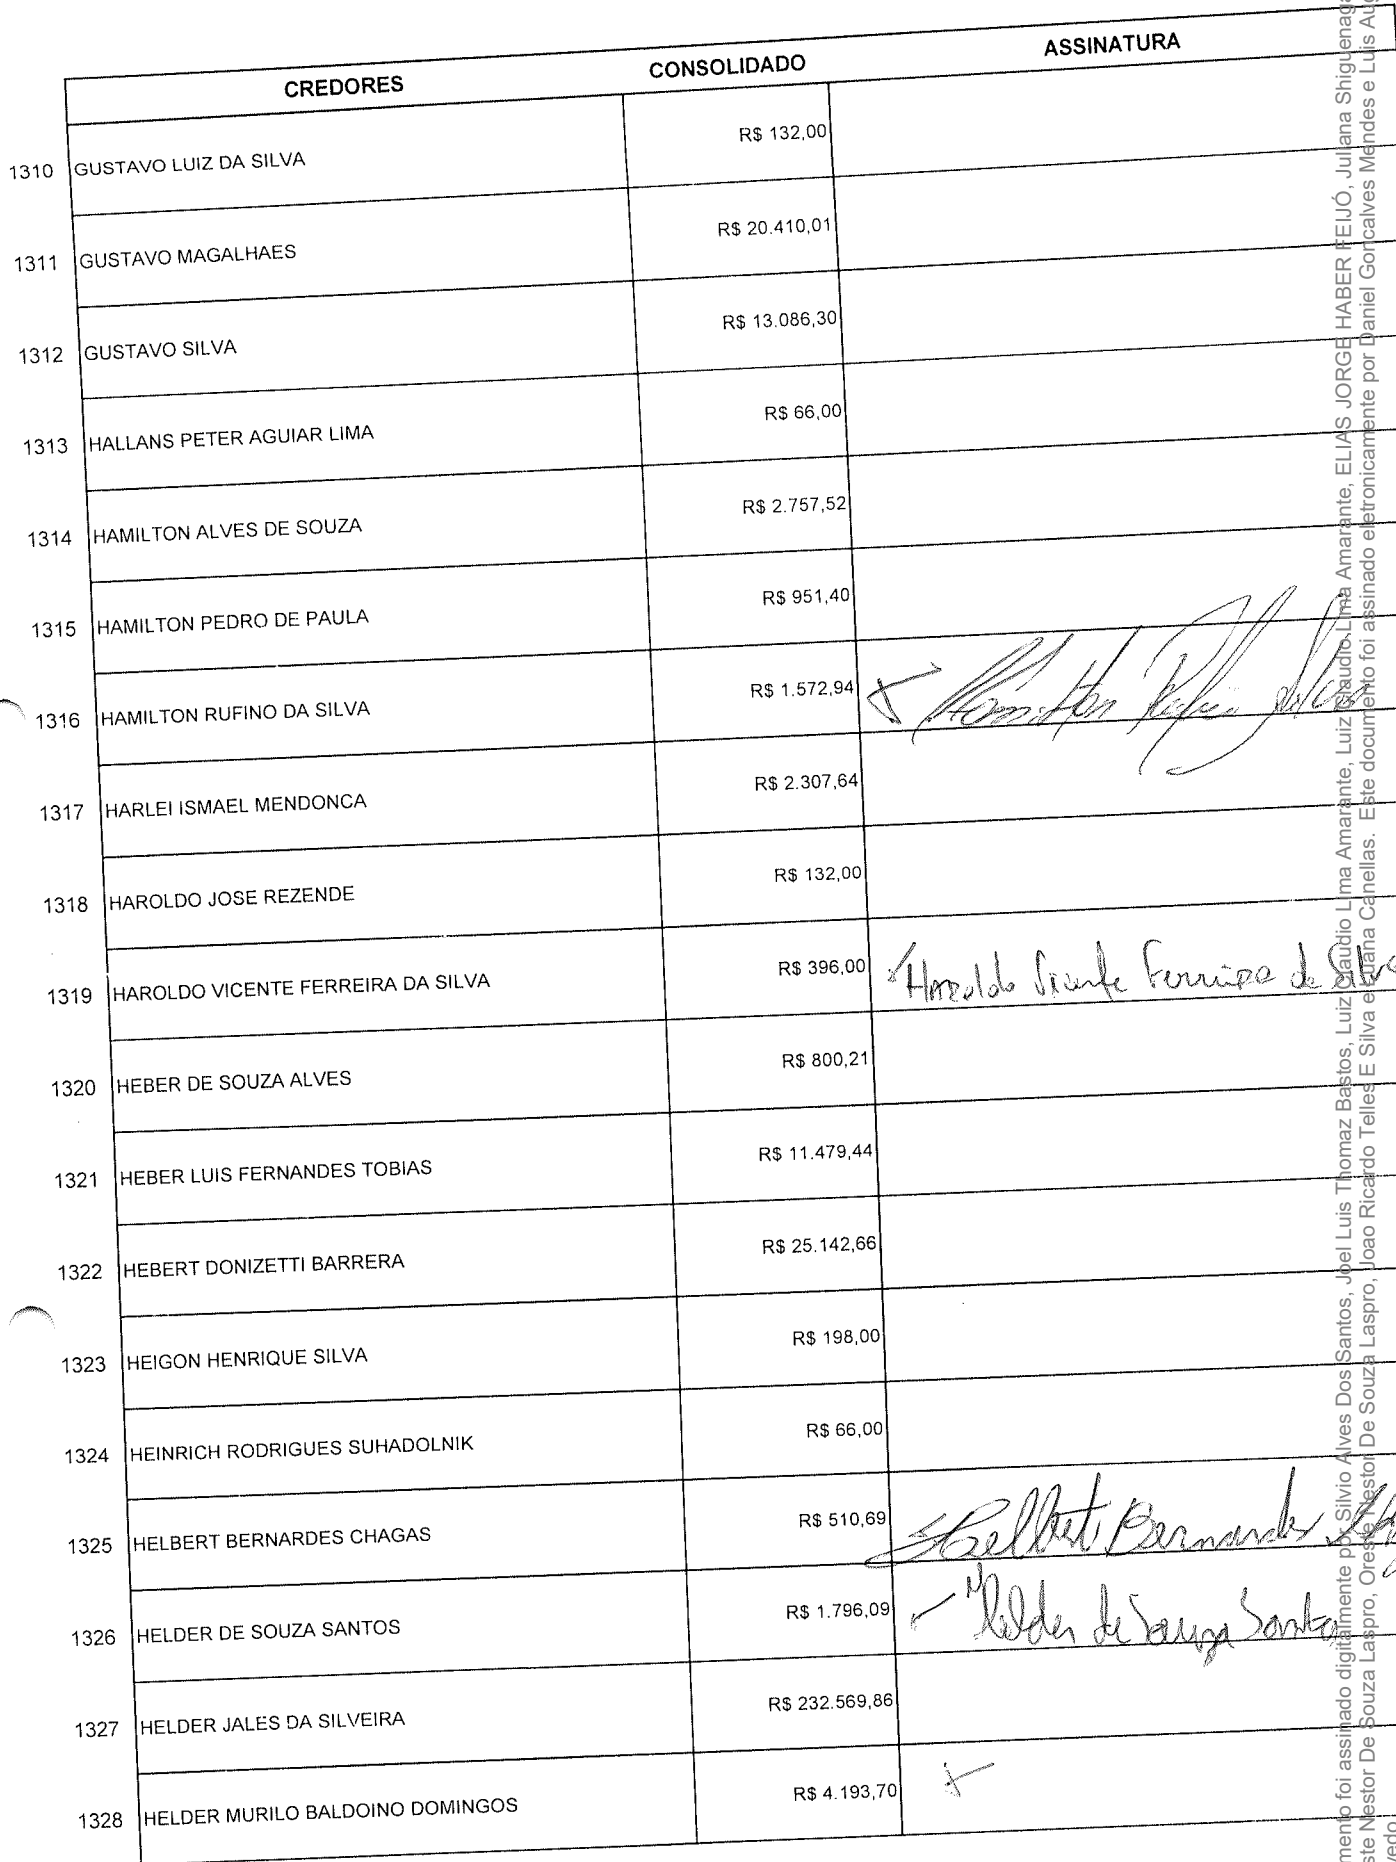 CREDORES CONSOLIDADO ASSINATURA
1310 GUSTAVO LUIZ DA SILVA R$ 132,00
1311 GUSTAVO MAGALHAES R$ 20.410,01
1312 GUSTAVO SILVA R$ 13.086,30
1313 HALLANS PETER AGUIAR LIMA R$ 66,00
1314 HAMILTON ALVES DE SOUZA R$ 2.757,52
1315 HAMILTON PEDRO DE PAULA R$ 951,40
1316 HAMILTON RUFINO DA SILVA R$ 1.572,94 Hamilton Rufino Silva
1317 HARLEI ISMAEL MENDONCA R$ 2.307,64
1318 HAROLDO JOSE REZENDE R$ 132,00
1319 HAROLDO VICENTE FERREIRA DA SILVA R$ 396,00 Haroldo Vicente Ferreira da Silva
1320 HEBER DE SOUZA ALVES R$ 800,21
1321 HEBER LUIS FERNANDES TOBIAS R$ 11.479,44
1322 HEBERT DONIZETTI BARRERA R$ 25.142,66
1323 HEIGON HENRIQUE SILVA R$ 198,00
1324 HEINRICH RODRIGUES SUHADOLNIK R$ 66,00
1325 HELBERT BERNARDES CHAGAS R$ 510,69 Helbert Bernardes
1326 HELDER DE SOUZA SANTOS R$ 1.796,09 Helder de Souza Santos
1327 HELDER JALES DA SILVEIRA R$ 232.569,86
1328 HELDER MURILO BALDOINO DOMINGOS R$ 4.193,70
mento foi assinado digitalmente por Silvio Alves Dos Santos, Joel Luis Thomaz Bastos, Luiz Claudio Lima Amarante, Luiz Claudio Lima Amarante, ELIAS JORGE HABER FEIJÓ, Juliana Shiguenaga
ste Nestor De Souza Laspro, Oreste Nestor De Souza Laspro, Joao Ricardo Telles E Silva e Luana Canellas. Este documento foi assinado eletronicamente por Daniel Goncalves Mendes e Luis Aug
vedo